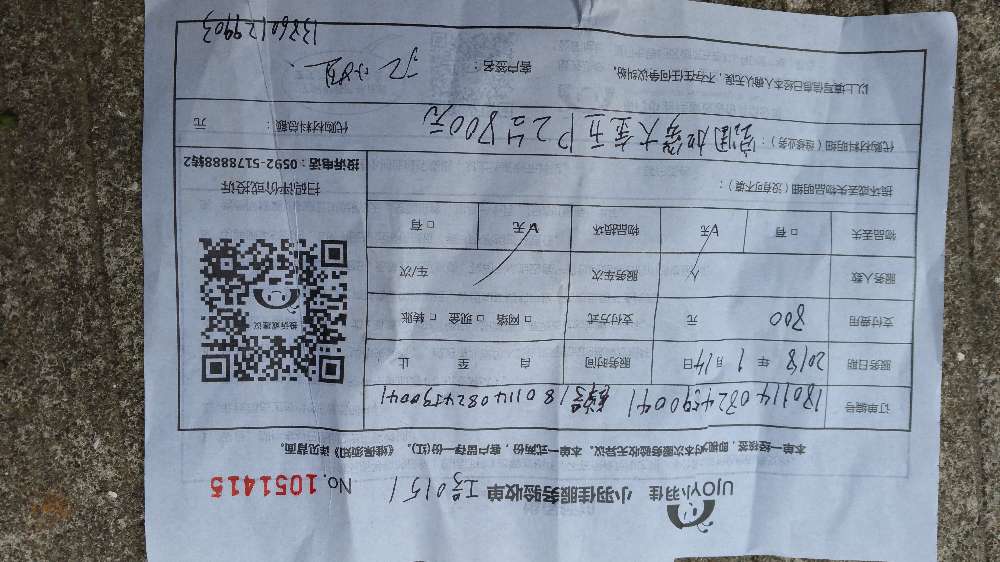 UJOY小羽佳 小羽佳服务验收单 工号0151 No.1051415
本单一经核签,即视为对本次服务验收无异议。本单一式两份,客户留存一份(红)。《维保须知》详见背面。
订单编号 1801140824590041 1801140824590041
服务日期 2018 年 1 月 14 日 服务时间 自 至 止
支付费用 800 元 支付方式 □ 网络 □ 现金 □ 转账
服务人数 人 服务车次 车/次
物品丢失 □ 有 无 物品损坏 无 □ 有
投诉或建议
扫码评价或投诉
投诉电话:0592-5178888转2
损坏或丢失物品明细(没有可不要):
代购材料明细(维修业务): 大金五P2台800元
代购材料总额: 元
以上填写信息已经本人确认无误,不存在任何争议纠纷。 客户签名:
13860129903